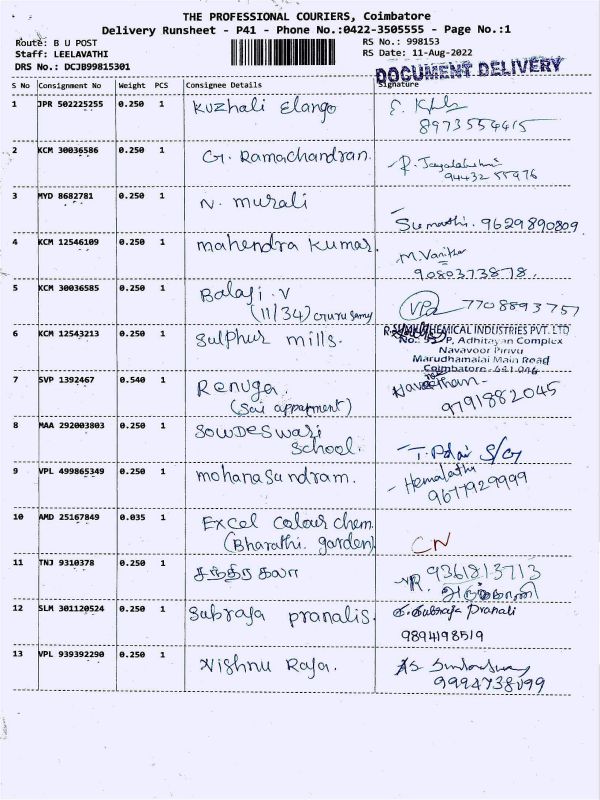 THE PROFESSIONAL COURIERS, Coimbatore
Delivery Runsheet - P41 - Phone No.:0422-3505555 - Page No.:1
Route: B U POST
RS No.: 998153
Staff: LEELAVATHI
RS Date: 11-Aug-2022
DRS No.: DCJB99815301
DOCUMENT DELIVERY
S No Consignment No Weight PCS Consignee Details Signature
1 JPR 502225255 0.250 1 Kuzhali Elango
8973554415
2 KCM 30036586 0.250 1 G. Ramachandran. R. Jayalakshmi
94432 55976
3 MYD 8682781 0.250 1 N. murali
Sumathi. 9629890809
4 KCM 12546109 0.250 1 mahendra kumar. M. Vanitha
9080373878.
5 KCM 30036585 0.250 1 Balaji. V 7708893757
(11/34) Guru Samy
6 KCM 12543213 0.250 1 Sulphur mills. CHEMICAL INDUSTRIES PVT. LTD
P, Adhitayan Complex
Navavoor Pirivu
Marudhamalai Main Road
Coimbatore - 641 046
7 SVP 1392467 0.540 1 Renuga.
(Sai appartment) 9791882045
8 MAA 292003803 0.250 1 SOWDESWARI
School. S/G
9 VPL 499865349 0.250 1 mohanasundram. - Hemalatha
9677929999
10 AMD 25167849 0.035 1 Excel colour chem.
(Bharathi. garden) CN
11 TNJ 9310378 0.250 1 சந்திரகலா R. 9361813713
12 SLM 301120524 0.250 1 Subraja pranalis. Subraja Pranali
9894198519
13 VPL 939392290 0.250 1 Vishnu Raja.
9994738099